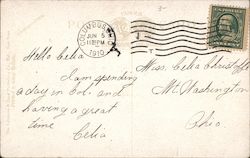 COLUMBUS
JUN 5
11 PM
1910
Hello Celia
I am spending
a day in Col. and
having a great
time
Celia
Miss. Celia
Mt. Washington
Ohio